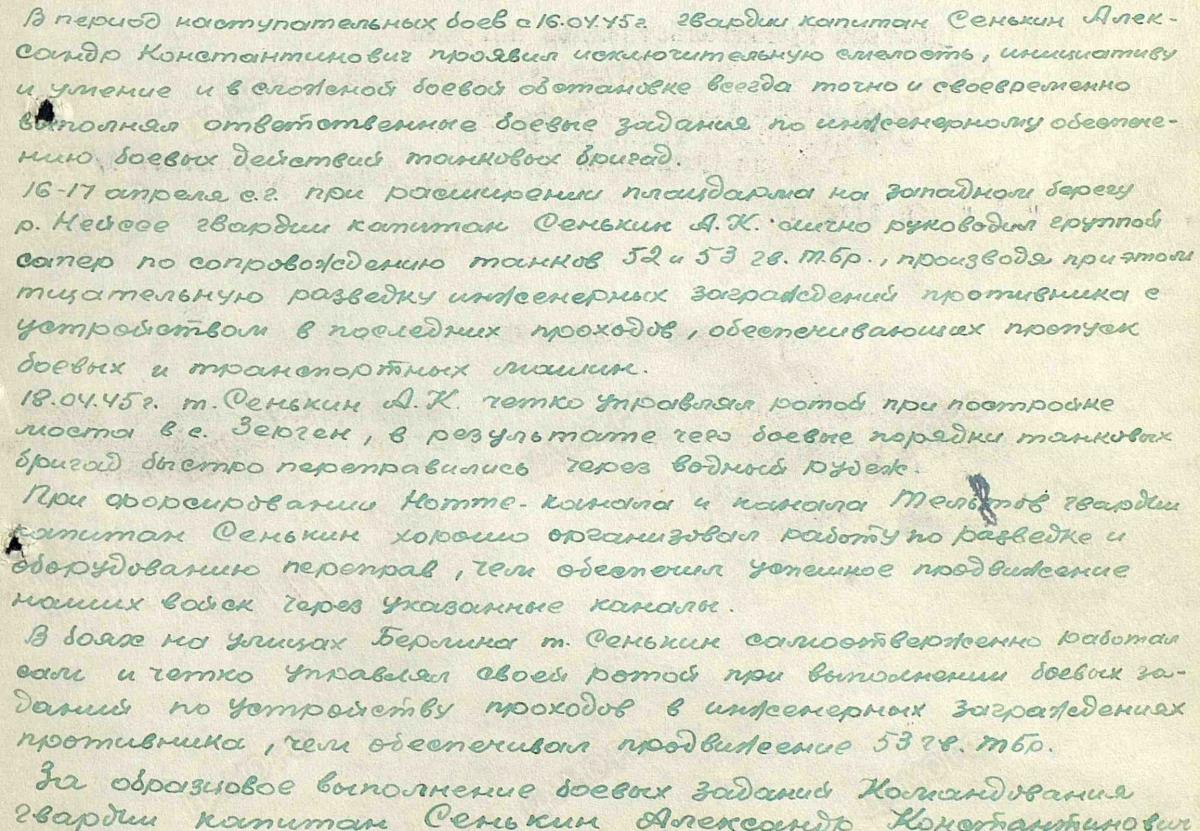 В период наступательных боев с 16.04.45г. гвардии капитан Сенькин Алек-
сандр Константинович проявил исключительную смелость, инициативу
и умение и в сложной боевой обстановке всегда точно и своевременно
выполнял ответственные боевые задания по инженерному обеспече-
нию боевых действий танковых бригад.
16-17 апреля с.г. при расширении плацдарма на западном берегу
р. Нейссе гвардии капитан Сенькин А.К. лично руководил группой
сапер по сопровождению танков 52 и 53 гв. тбр., производя при этом
тщательную разведку инженерных заграждений противника с
устройством в последних проходов, обеспечивающих пропуск
боевых и транспортных машин.
18.04.45г. т. Сенькин А.К. четко управлял ротой при постройке
моста в с. Зерген, в результате чего боевые порядки танковых
бригад быстро переправились через водный рубеж.
При форсировании Нотте-канала и канала Тельтов гвардии
капитан Сенькин хорошо организовал работу по разведке и
оборудованию переправ, чем обеспечил успешное продвижение
наших войск через указанные каналы.
В боях на улицах Берлина т. Сенькин самоотверженно работал
сам и четко управлял своей ротой при выполнении боевых за-
даний по устройству проходов в инженерных заграждениях
противника, чем обеспечивал продвижение 53 гв. тбр.
За образцовое выполнение боевых заданий Командования
гвардии капитан Сенькин Александр Константинович